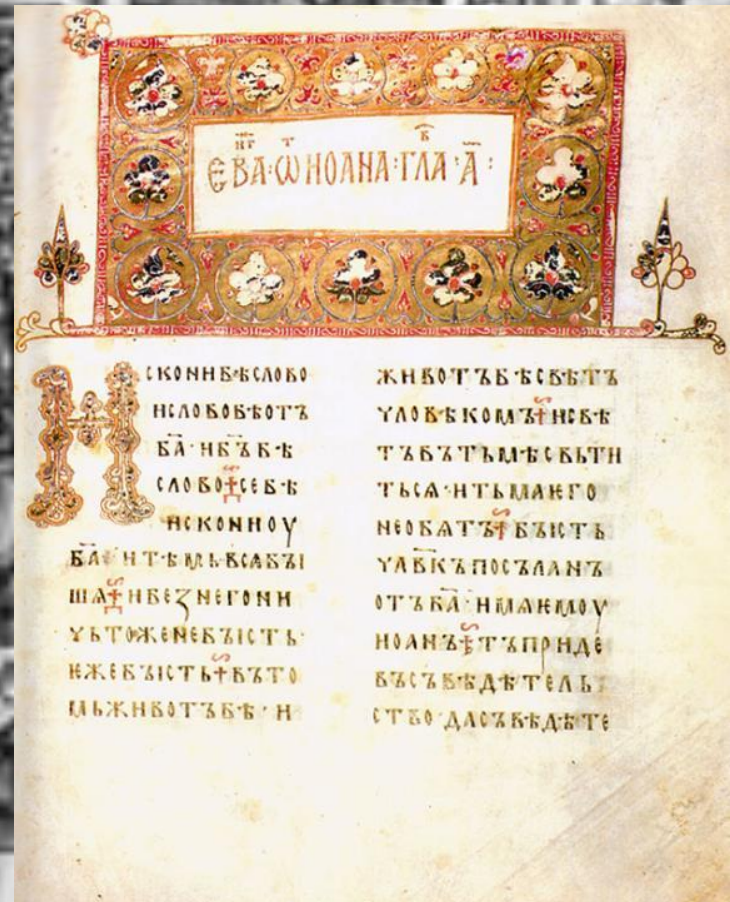 ЕВА·Ѡ ИОАНА·ГЛА·А҃:
ИСКОНИБѢСЛОВО
ИСЛОВОБѢОТЪ
БА҃·ИБ҃ЪБѢ
СЛОВО СЕБѢ
ИСКОНИОУ
БА҃ ИТѢМЬВСѦБЫ
ШѦ ИБЕЗНЕГОНИ
ЧЬТОЖЕНЕБЫСТЬ·
ѤЖЕБЫСТЬ ВЪТО
МЬЖИВОТЪБѢ·И
ЖИВОТЪБѢСВѢТЪ
ЧЛОВѢКОМЪ ИСВѢ
ТЪВЪТЬМѢСВЬТИ
ТЬСѦ·ИТЬМАѤГО
НЕОБѦТЪ БЫСТЬ
ЧЛ҃ВКЪПОСЪЛАНЪ
ОТЪБА҃·ИМѦѤМОУ
ИОАНЪ ТЪПРИДЕ
ВЪСЪВѢДѢТЕЛЬ
СТВО·ДАСЪВѢДѢТЕ